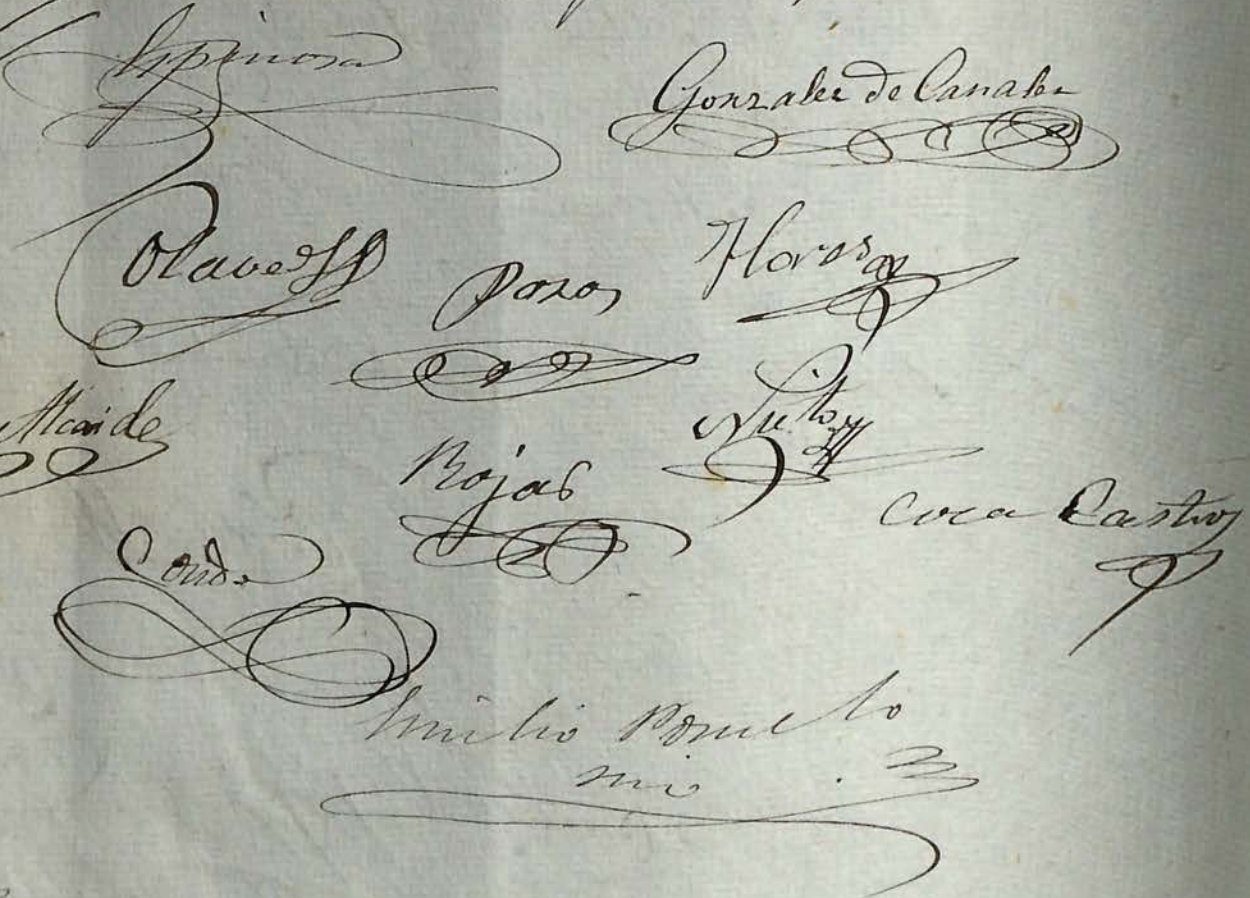 Espinosa
Gonzalez de Canales
Olave
Pozo
Flores
Alcaide
Nieto
Rojas
Coca Castro
Conde
Emilio